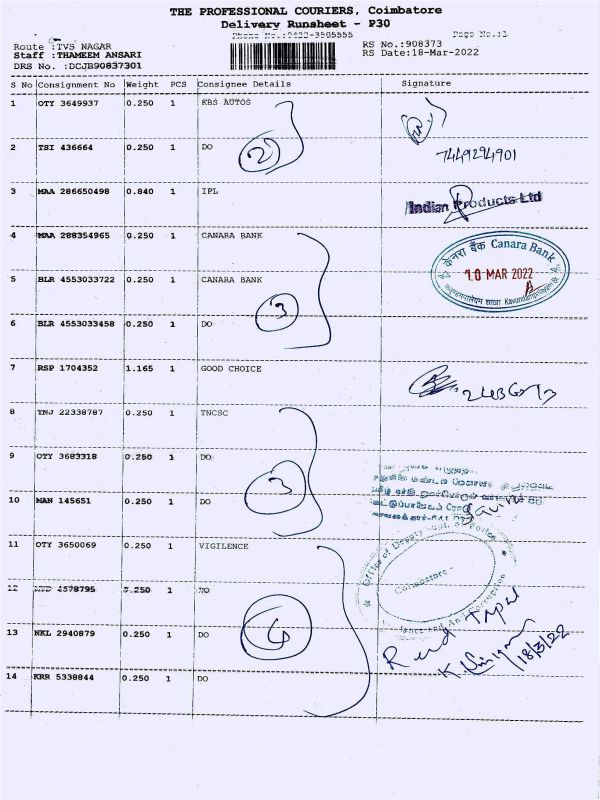 THE PROFESSIONAL COURIERS, Coimbatore
Delivery Runsheet - P30
Phone No.:0422-3505555 Page No.:1
Route :TVS NAGAR RS No.:908373
Staff :THAMEEM ANSARI RS Date:18-Mar-2022
DRS No. :DCJB90837301
S No Consignment No Weight PCS Consignee Details Signature
1 OTY 3649937 0.250 1 KBS AUTOS
2 TSI 436664 0.250 1 DO
2
7449294901
3 MAA 286650498 0.840 1 IPL
Indian Products Ltd
4 MAA 288354965 0.250 1 CANARA BANK
केनरा बैंक Canara Bank
10 MAR 2022
5 BLR 4553033722 0.250 1 CANARA BANK
3
6 BLR 4553033458 0.250 1 DO
7 RSP 1704352 1.165 1 GOOD CHOICE
8 TNJ 22338787 0.250 1 TNCSC
9 OTY 3683318 0.250 1 DO
3
10 MAN 145651 0.250 1 DO
11 OTY 3650069 0.250 1 VIGILENCE
Office of Deputy
Coimbatore
and Anti Corruption
12 4578795 0.250 1 DO
4
13 NKL 2940879 0.250 1 DO
18/3/22
14 KRR 5338844 0.250 1 DO